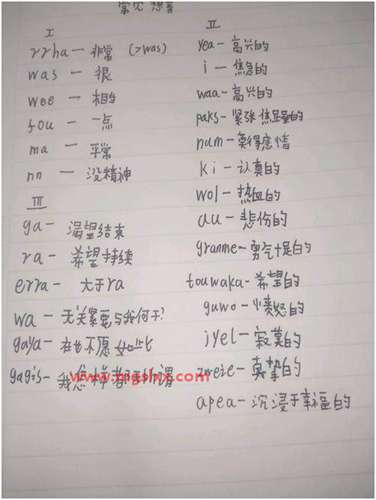 常见想音
I
rrha — 非常 (>was)
was — 很
wee — 相当
fou — 一点
ma — 平常
nn — 没精神
III
ga — 渴望结束
ra — 希望持续
erra — 大于ra
wa — 无关紧要与我何干?
gaya — 在也不愿如此
gagis — 我怎样都无所谓
www.mgslnx.com
II
yea — 高兴的
i — 焦急的
waa — 高兴的
paks — 紧张焦虑的
num — 莫得感情
ki — 认真的
wol — 热血的
au — 悲伤的
granme — 勇气十足的
touwaka — 希望的
guwo — 愤怒的
iyel — 寂寞的
zweie — 真挚的
apea — 沉浸于幸福的